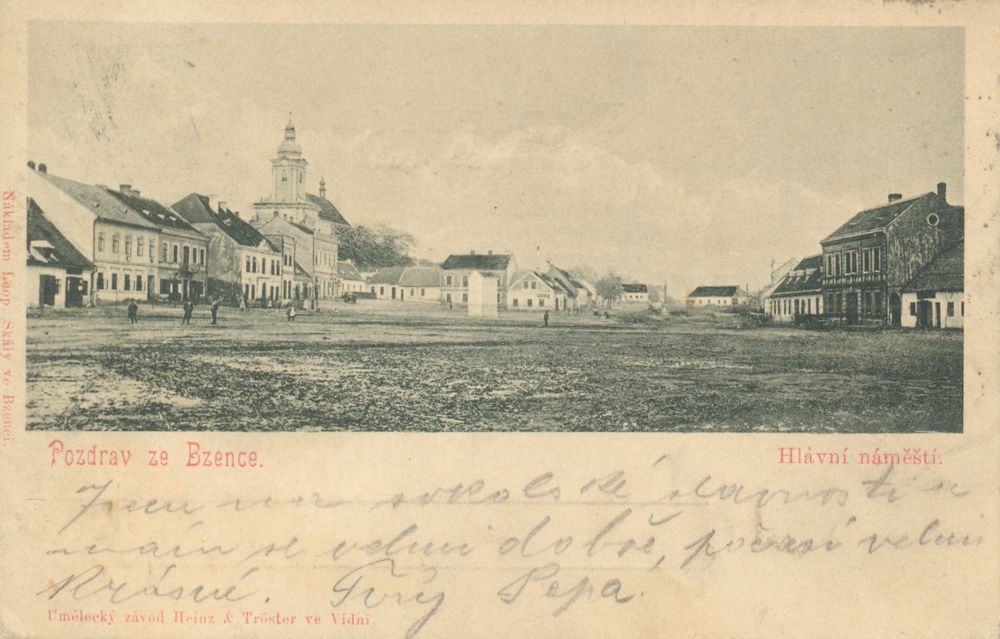 Nákladem Leop. Skály ve Bzenci.
Pozdrav ze Bzence.
Hlavní náměstí.
Jsem na sokolské slavnosti a
mám se velmi dobře, počasí velmi
krásné. Tvůj Pepa.
Umělecký závod Heinz & Tröster ve Vídni.